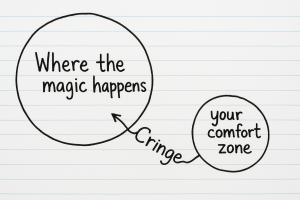 Where the
magic happens
Cringe
your
comfort
zone